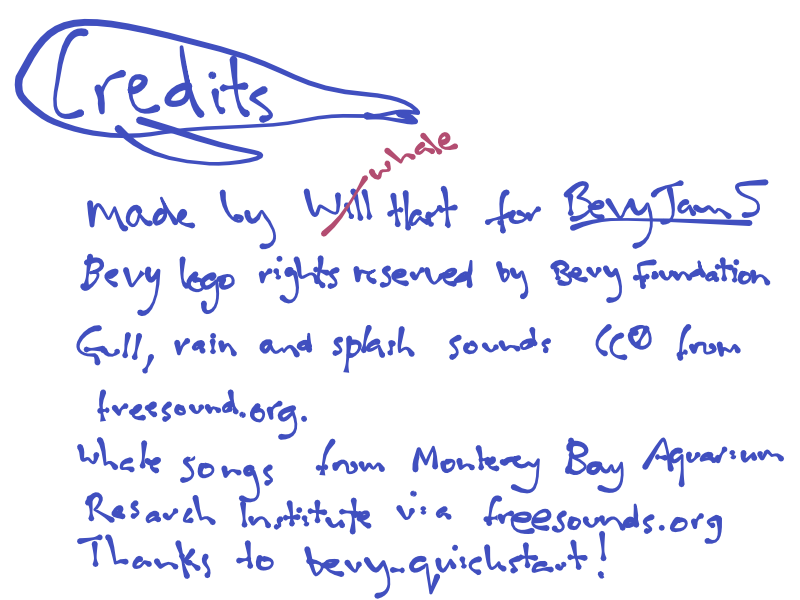 Credits
whale
made by Will Hart for Bevy Jam 5
Bevy logo rights reserved by Bevy Foundation
Gull, rain and splash sounds CC0 from
freesound.org.
Whale songs from Monterey Bay Aquarium
Research Institute via freesounds.org
Thanks to bevy-quickstart!